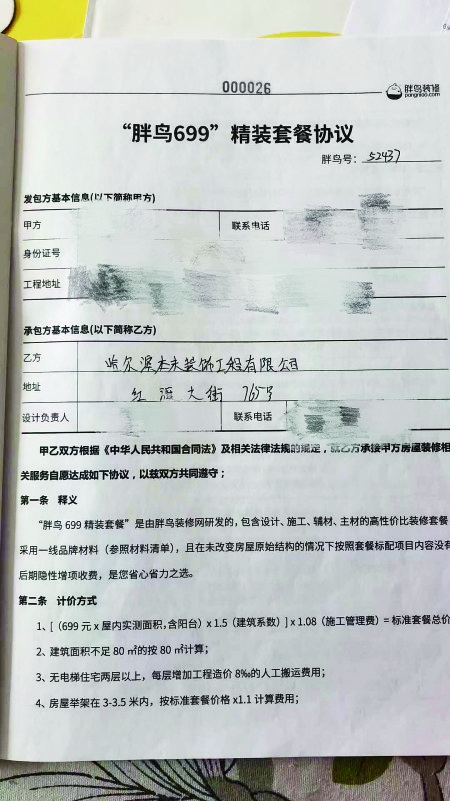 000026
胖鸟装修
pangniao.com
“胖鸟699”精装套餐协议
胖鸟号：52437
发包方基本信息(以下简称甲方)
甲方 联系电话
身份证号
工程地址
承包方基本信息(以下简称乙方)
乙方 哈尔滨本末装饰工程有限公司
地址 红源大街765号
设计负责人 联系电话
甲乙双方根据《中华人民共和国合同法》及相关法律法规的规定，就乙方承接甲方房屋装修相
关服务自愿达成如下协议，以兹双方共同遵守；
第一条 释义
“胖鸟 699 精装套餐”是由胖鸟装修网研发的，包含设计、施工、辅材、主材的高性价比装修套餐
采用一线品牌材料（参照材料清单），且在未改变房屋原始结构的情况下按照套餐标配项目内容没有
后期隐性增项收费，是您省心省力之选。
第二条 计价方式
1、[（699 元 x 屋内实测面积，含阳台）x 1.5（建筑系数）] x 1.08（施工管理费）= 标准套餐总价
2、建筑面积不足 80 ㎡的按 80 ㎡计算；
3、无电梯住宅两层以上，每层增加工程造价 8‰的人工搬运费用；
4、房屋举架在 3-3.5 米内，按标准套餐价格 x1.1 计算费用；